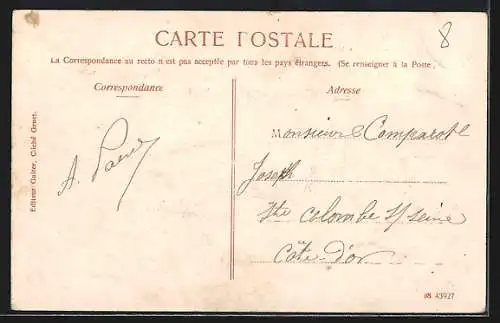 CARTE POSTALE
8
La Correspondance au recto n'est pas acceptée par tous les pays étrangers. (Se renseigner à la Poste)
Correspondance
Adresse
Monsieur Comparot
Joseph
A.
Ste Colombe s/ Seine
Côte-d'or
Editeur Cliché
98 43927